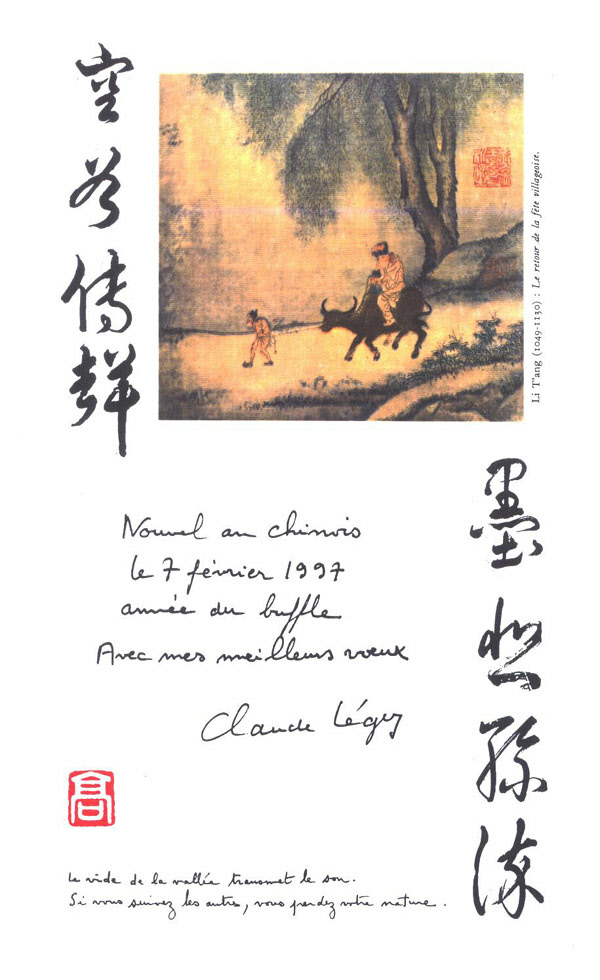 空谷傳聲
Li T'ang (1049-1130) : Le retour de la fête villageoise.
墨悲絲染
Nouvel an chinois
le 7 février 1997
année du buffle
Avec mes meilleurs vœux
Claude Léger
高
Le vide de la vallée transmet le son.
Si vous suivez les autres, vous perdez votre nature.